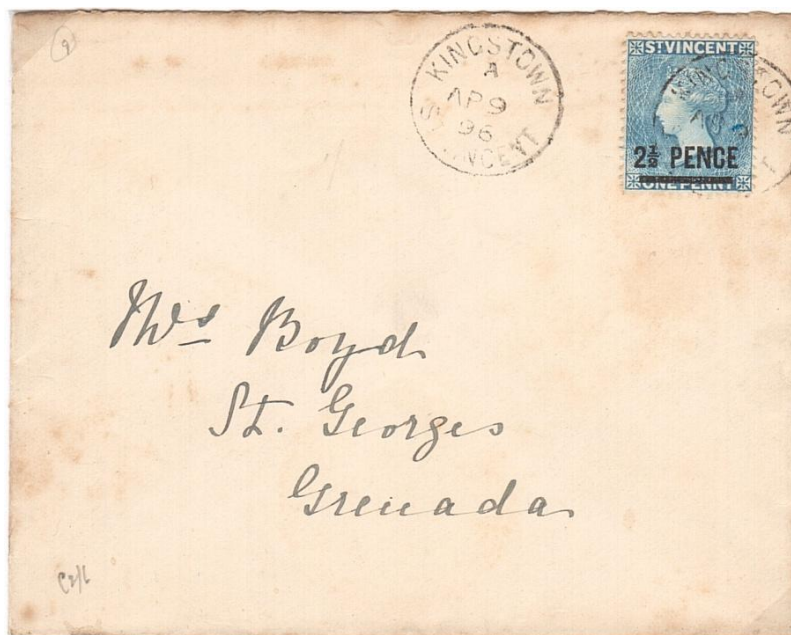 KINGSTOWN
A
AP 9
96
ST VINCENT
ST VINCENT
2½ PENCE
ONE PENNY
Mrs Boyd
St. Georges
Grenada